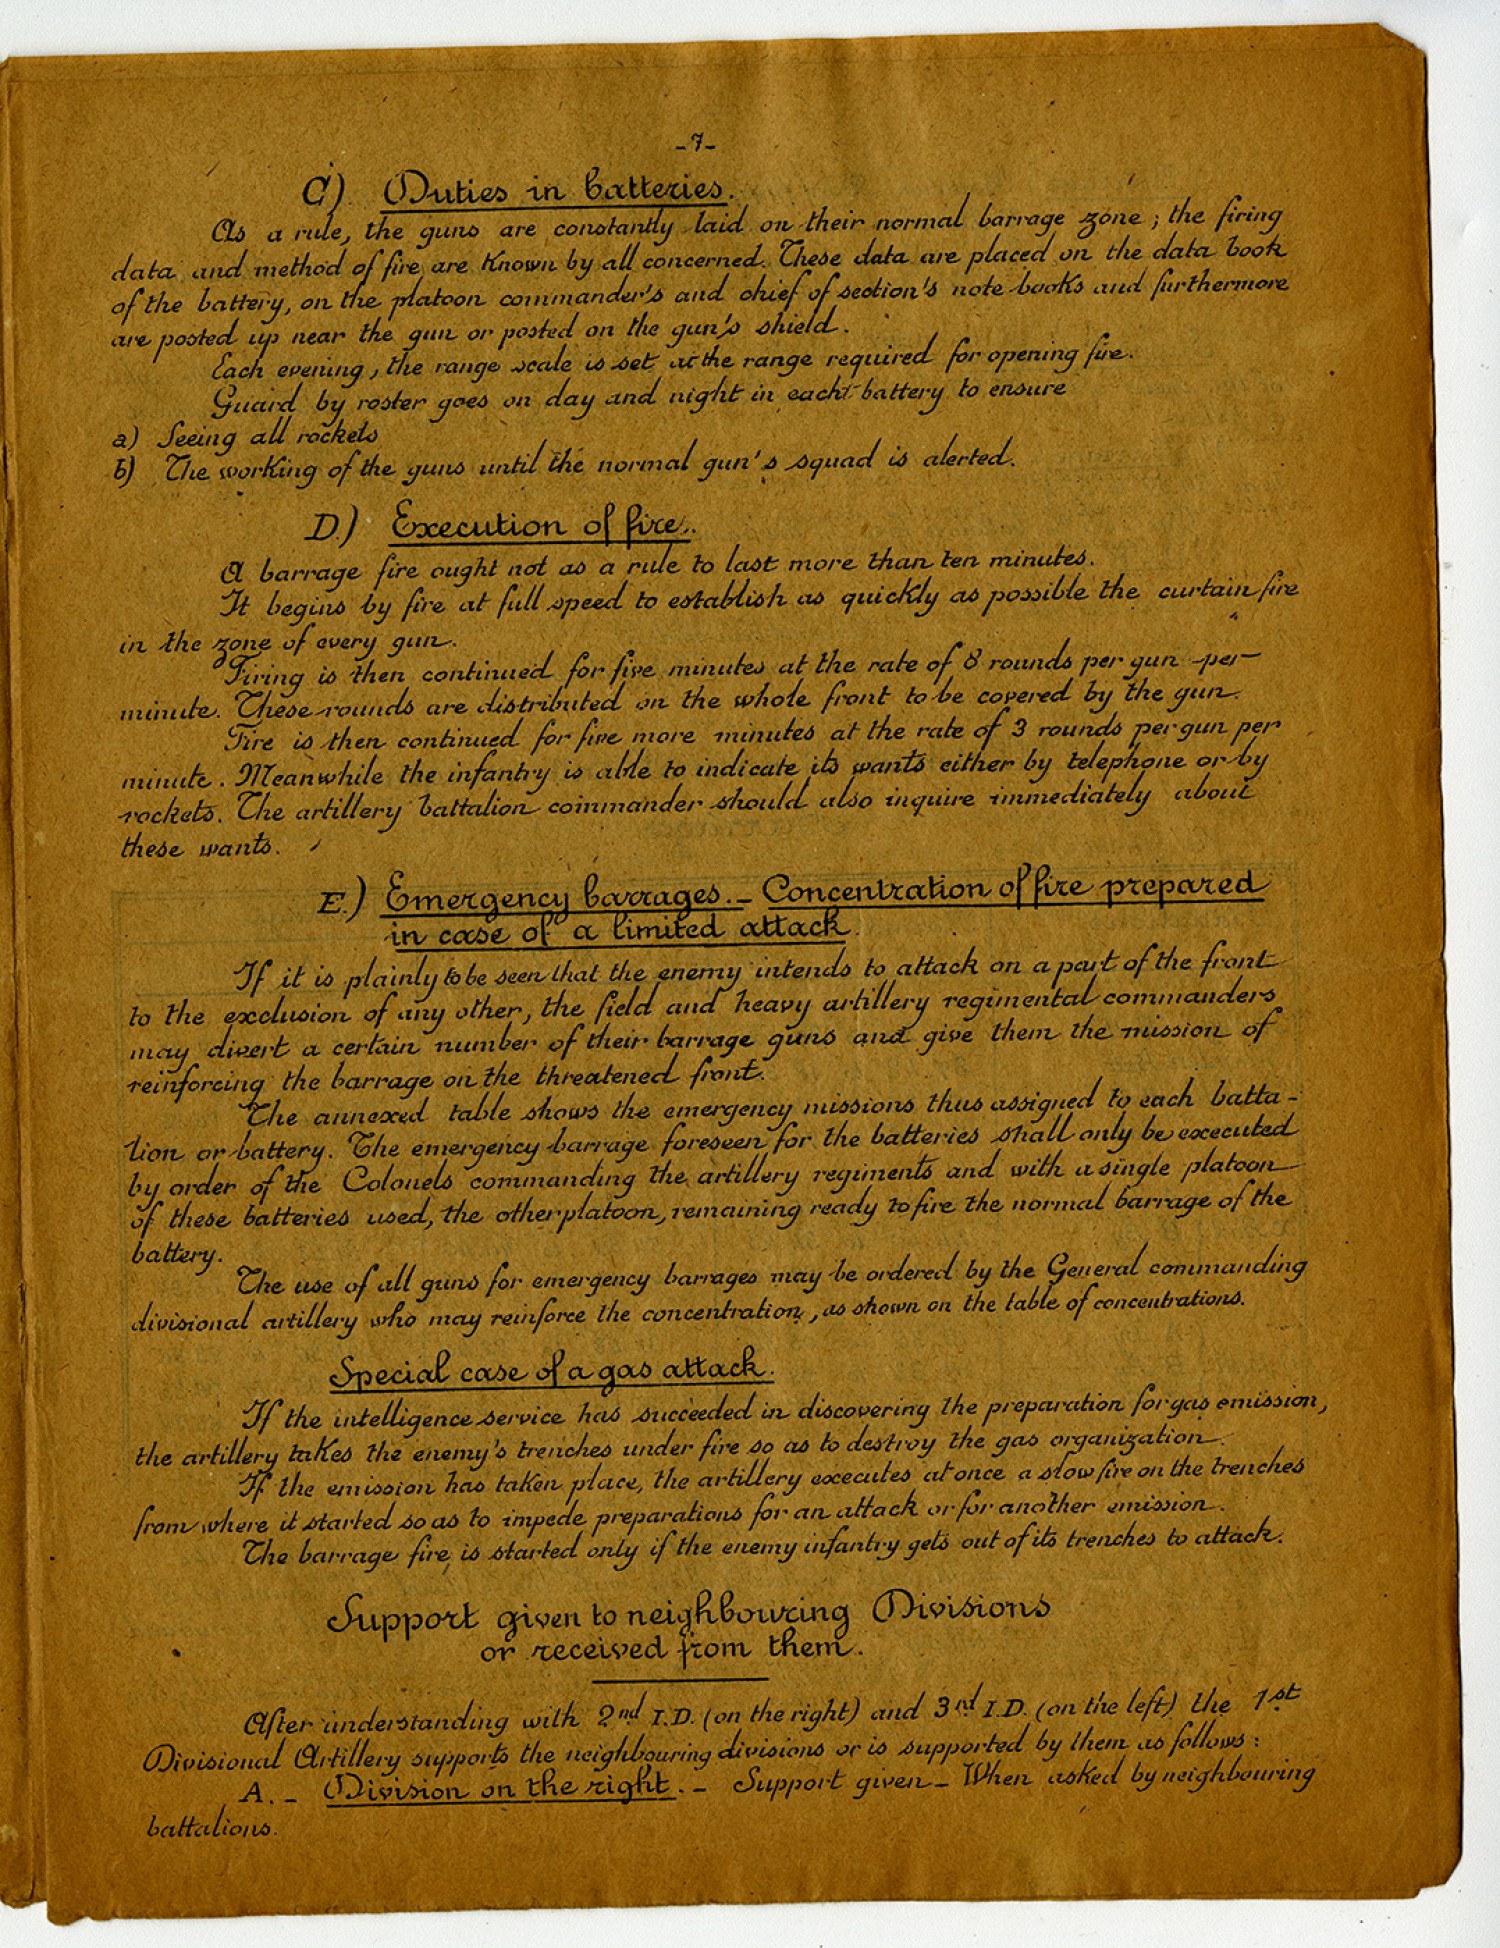 -7-
C) Duties in batteries.
As a rule, the guns are constantly laid on their normal barrage zone; the firing
data and method of fire are known by all concerned. These data are placed on the data book
of the battery, on the platoon commander's and chief of section's note books and furthermore
are posted up near the gun or posted on the gun's shield.
Each evening, the range scale is set at the range required for opening fire.
Guard by roster goes on day and night in each battery to ensure
a) Seeing all rockets
b) The working of the guns until the normal gun's squad is alerted.
D.) Execution of fire.
A barrage fire ought not as a rule to last more than ten minutes.
It begins by fire at full speed to establish as quickly as possible the curtain fire
in the zone of every gun.
Firing is then continued for five minutes at the rate of 8 rounds per gun per
minute. These rounds are distributed on the whole front to be covered by the gun.
Fire is then continued for five more minutes at the rate of 3 rounds per gun per
minute. Meanwhile the infantry is able to indicate its wants either by telephone or by
rockets. The artillery battalion commander should also inquire immediately about
these wants.
E.) Emergency barrages. - Concentration of fire prepared
in case of a limited attack.
If it is plainly to be seen that the enemy intends to attack on a part of the front
to the exclusion of any other, the field and heavy artillery regimental commanders
may divert a certain number of their barrage guns and give them the mission of
reinforcing the barrage on the threatened front.
The annexed table shows the emergency missions thus assigned to each batta-
lion or battery. The emergency barrage foreseen for the batteries shall only be executed
by order of the Colonels commanding the artillery regiments and with a single platoon
of these batteries used, the other platoon, remaining ready to fire the normal barrage of the
battery.
The use of all guns for emergency barrages may be ordered by the General commanding
divisional artillery who may reinforce the concentration, as shown on the table of concentrations.
Special case of a gas attack.
If the intelligence service has succeeded in discovering the preparation for gas emission,
the artillery takes the enemy's trenches under fire so as to destroy the gas organization.
If the emission has taken place, the artillery executes at once a slow fire on the trenches
from where it started so as to impede preparations for an attack or for another emission.
The barrage fire is started only if the enemy infantry gets out of its trenches to attack.
Support given to neighbouring Divisions
or received from them.
After understanding with 2nd I.D. (on the right) and 3rd I.D. (on the left) the 1st
Divisional Artillery supports the neighbouring divisions or is supported by them as follows:
A. - Division on the right. - Support given - When asked by neighbouring
battalions.